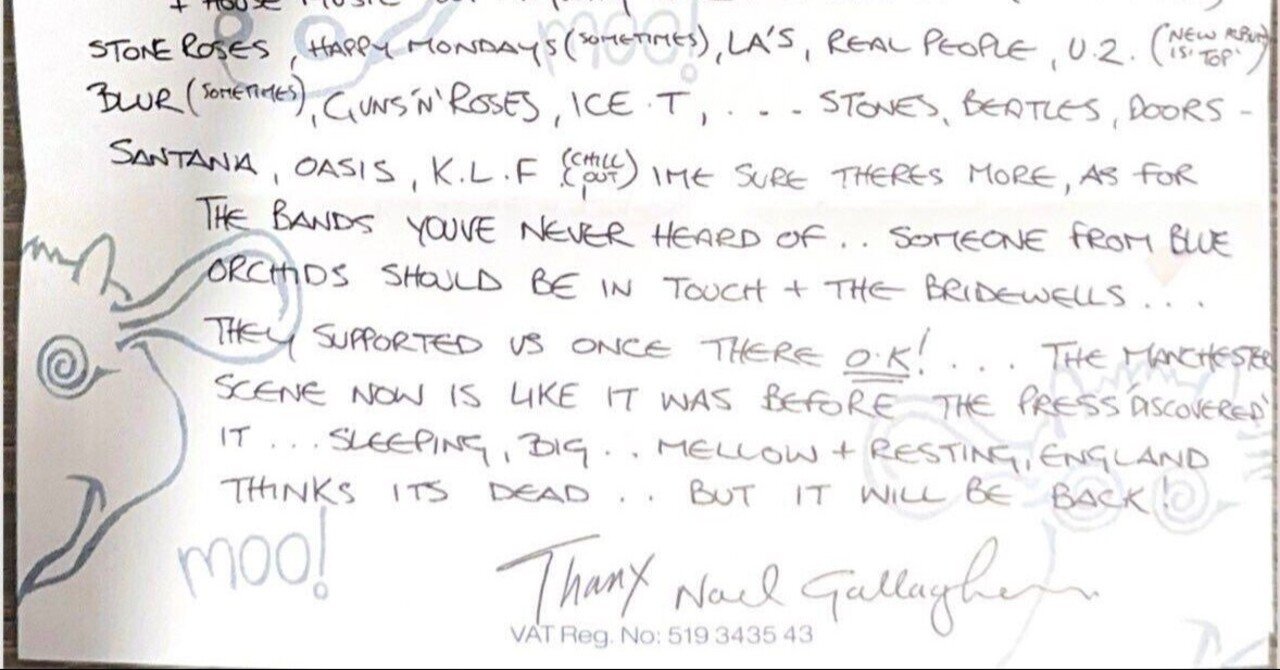 + HOUSE MUSIC
STONE ROSES, HAPPY MONDAYS (SOMETIMES), LA'S, REAL PEOPLE, U.2. (NEW ALBUM IS 'TOP')
BLUR (SOMETIMES), GUNS 'N' ROSES, ICE.T, . - - STONES, BEATLES, DOORS -
SANTANA, OASIS, K.L.F (CHILL OUT) IME SURE THERES MORE, AS FOR
THE BANDS YOUVE NEVER HEARD OF . . SOMEONE FROM BLUE
ORCHIDS SHOULD BE IN TOUCH + THE BRIDEWELLS . . .
THEY SUPPORTED US ONCE THERE O.K! . . . . THE MANCHESTER
SCENE NOW IS LIKE IT WAS BEFORE THE PRESS 'DISCOVERED'
IT . . . SLEEPING, BIG . . MELLOW + RESTING, ENGLAND
THINKS ITS DEAD . . BUT IT WILL BE BACK!
moo!
moo!
Thanx Noel Gallagher
VAT Reg. No: 519 3435 43